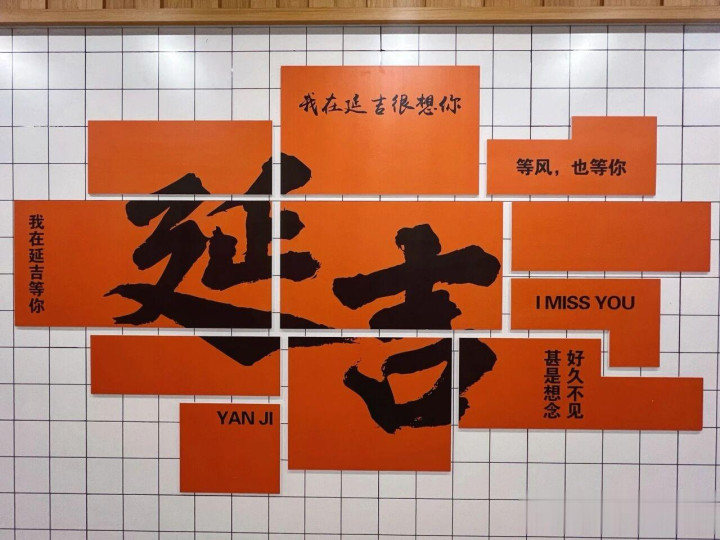 我在延吉很想你
等风，也等你
延吉
我在延吉等你
I MISS YOU
好久不见
甚是想念
YAN JI